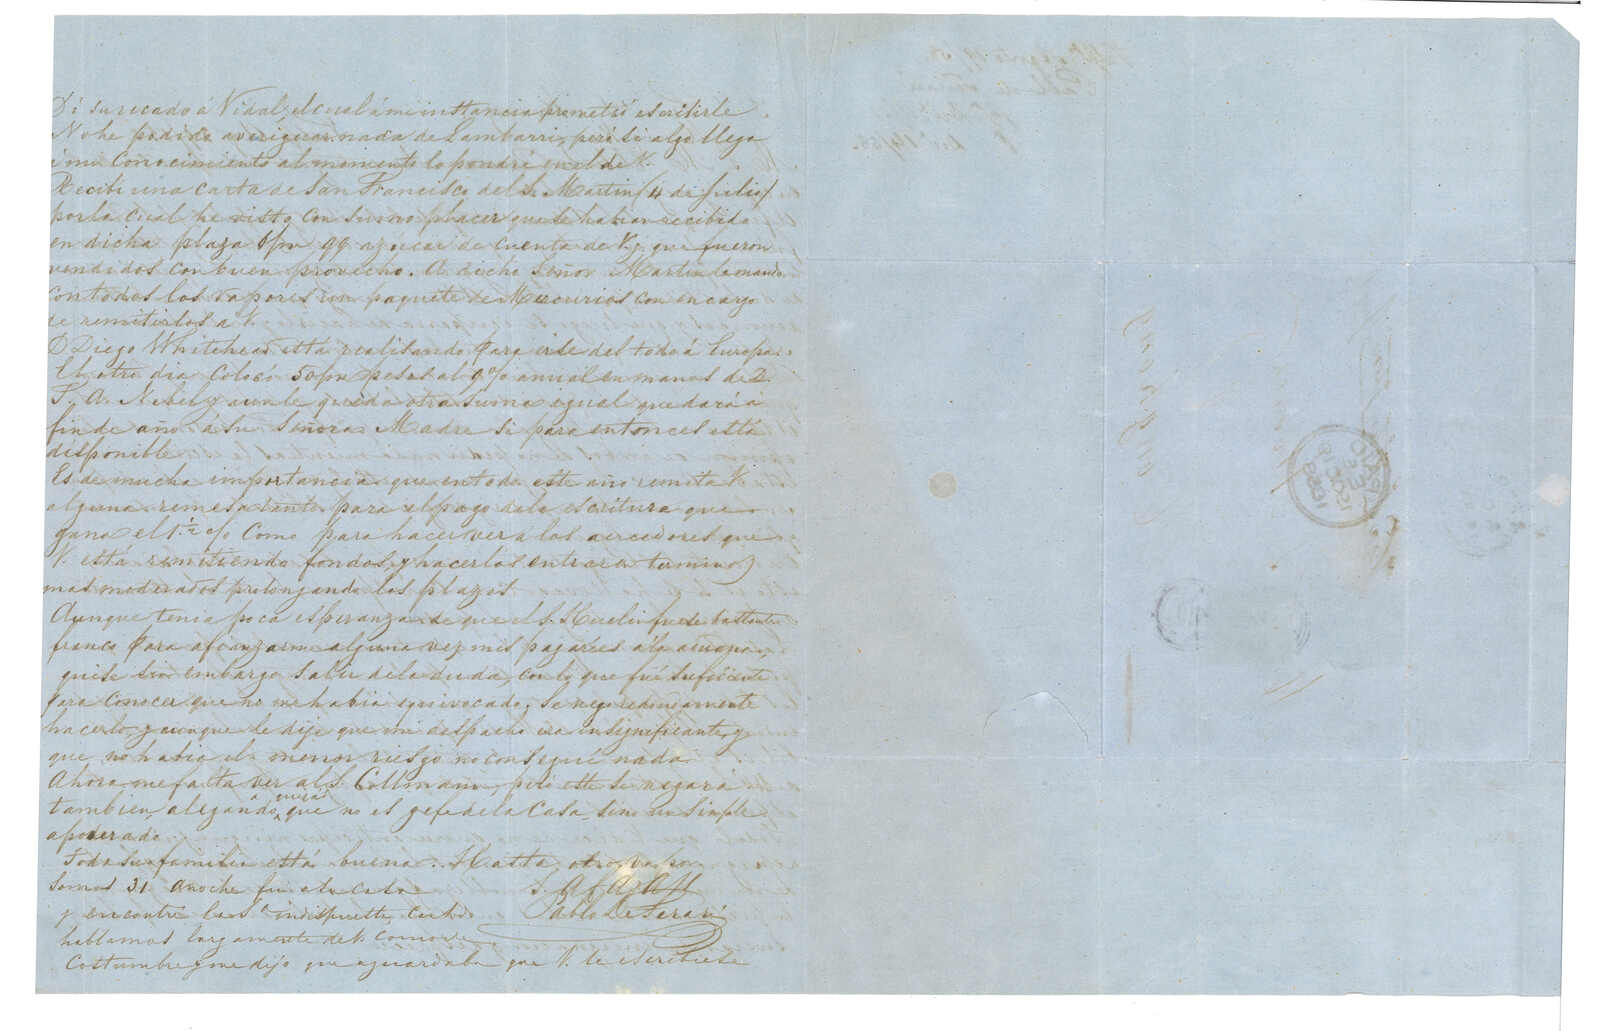 Di su recado á Vidal, el cual á mi instancia prometió escribirle
No he podido averiguar nada de Lambarri, pero si algo llega
á mi conocimiento al momento lo pondré en el de V.
Recibi una carta de San Francisco del S. Martin (4 de Julio)
por la cual he visto con sumo placer que se habian recibido
en dicha plaza qq azucar de cuenta de V. y que fueron
vendidos con buen provecho. A dicho Señor Martin le mando
con todos los vapores un paquete de Mercurios con encargo
de remitirlos a V.
D Diego Whitehead está realisando para irse del todo á Europa.
El otro dia colocó 50 pm pesos al 9% anual en manos de D.
F. A. y aun le queda otra suma igual que dará á
fin de año á su Señora Madre si para entonces está
disponible
Es de mucha importancia que en todo este año remita V.
alguna remesa tanto para el pago de la escritura que
gana el 1½ c/o como para hacer ver á los acreedores que
V. está remitiendo fondos, y hacerlos entrar en terminos
mas moderados prolongando los plazos
Aunque tenia poca esperanza de que el S. Huelin fuese bastante
franco para afianzarme alguna vez mis pagarées á la aduana,
quise sin embargo salir de la duda, con lo que fué suficiente
para conocer que no me habia equivocado; se negó redondamente
hacerlo, y aunque le dije que mi despacho era insignificante, y
que no habia el menor riesgo no conseguí nada
Ahora me falta ver al S. Collmann, pero este se negará
tambien, alegando quizá que no es gefe de la casa, sino un simple
apoderado.
Toda su familia está buena. Hasta otro vapor
Somos 31 anoche fui a su casa S.
y encontré la Sª indispuesta, Pablo De
hablamos largamente de V. como de
costumbre y me dijo que aguardaba que V. le escribiese